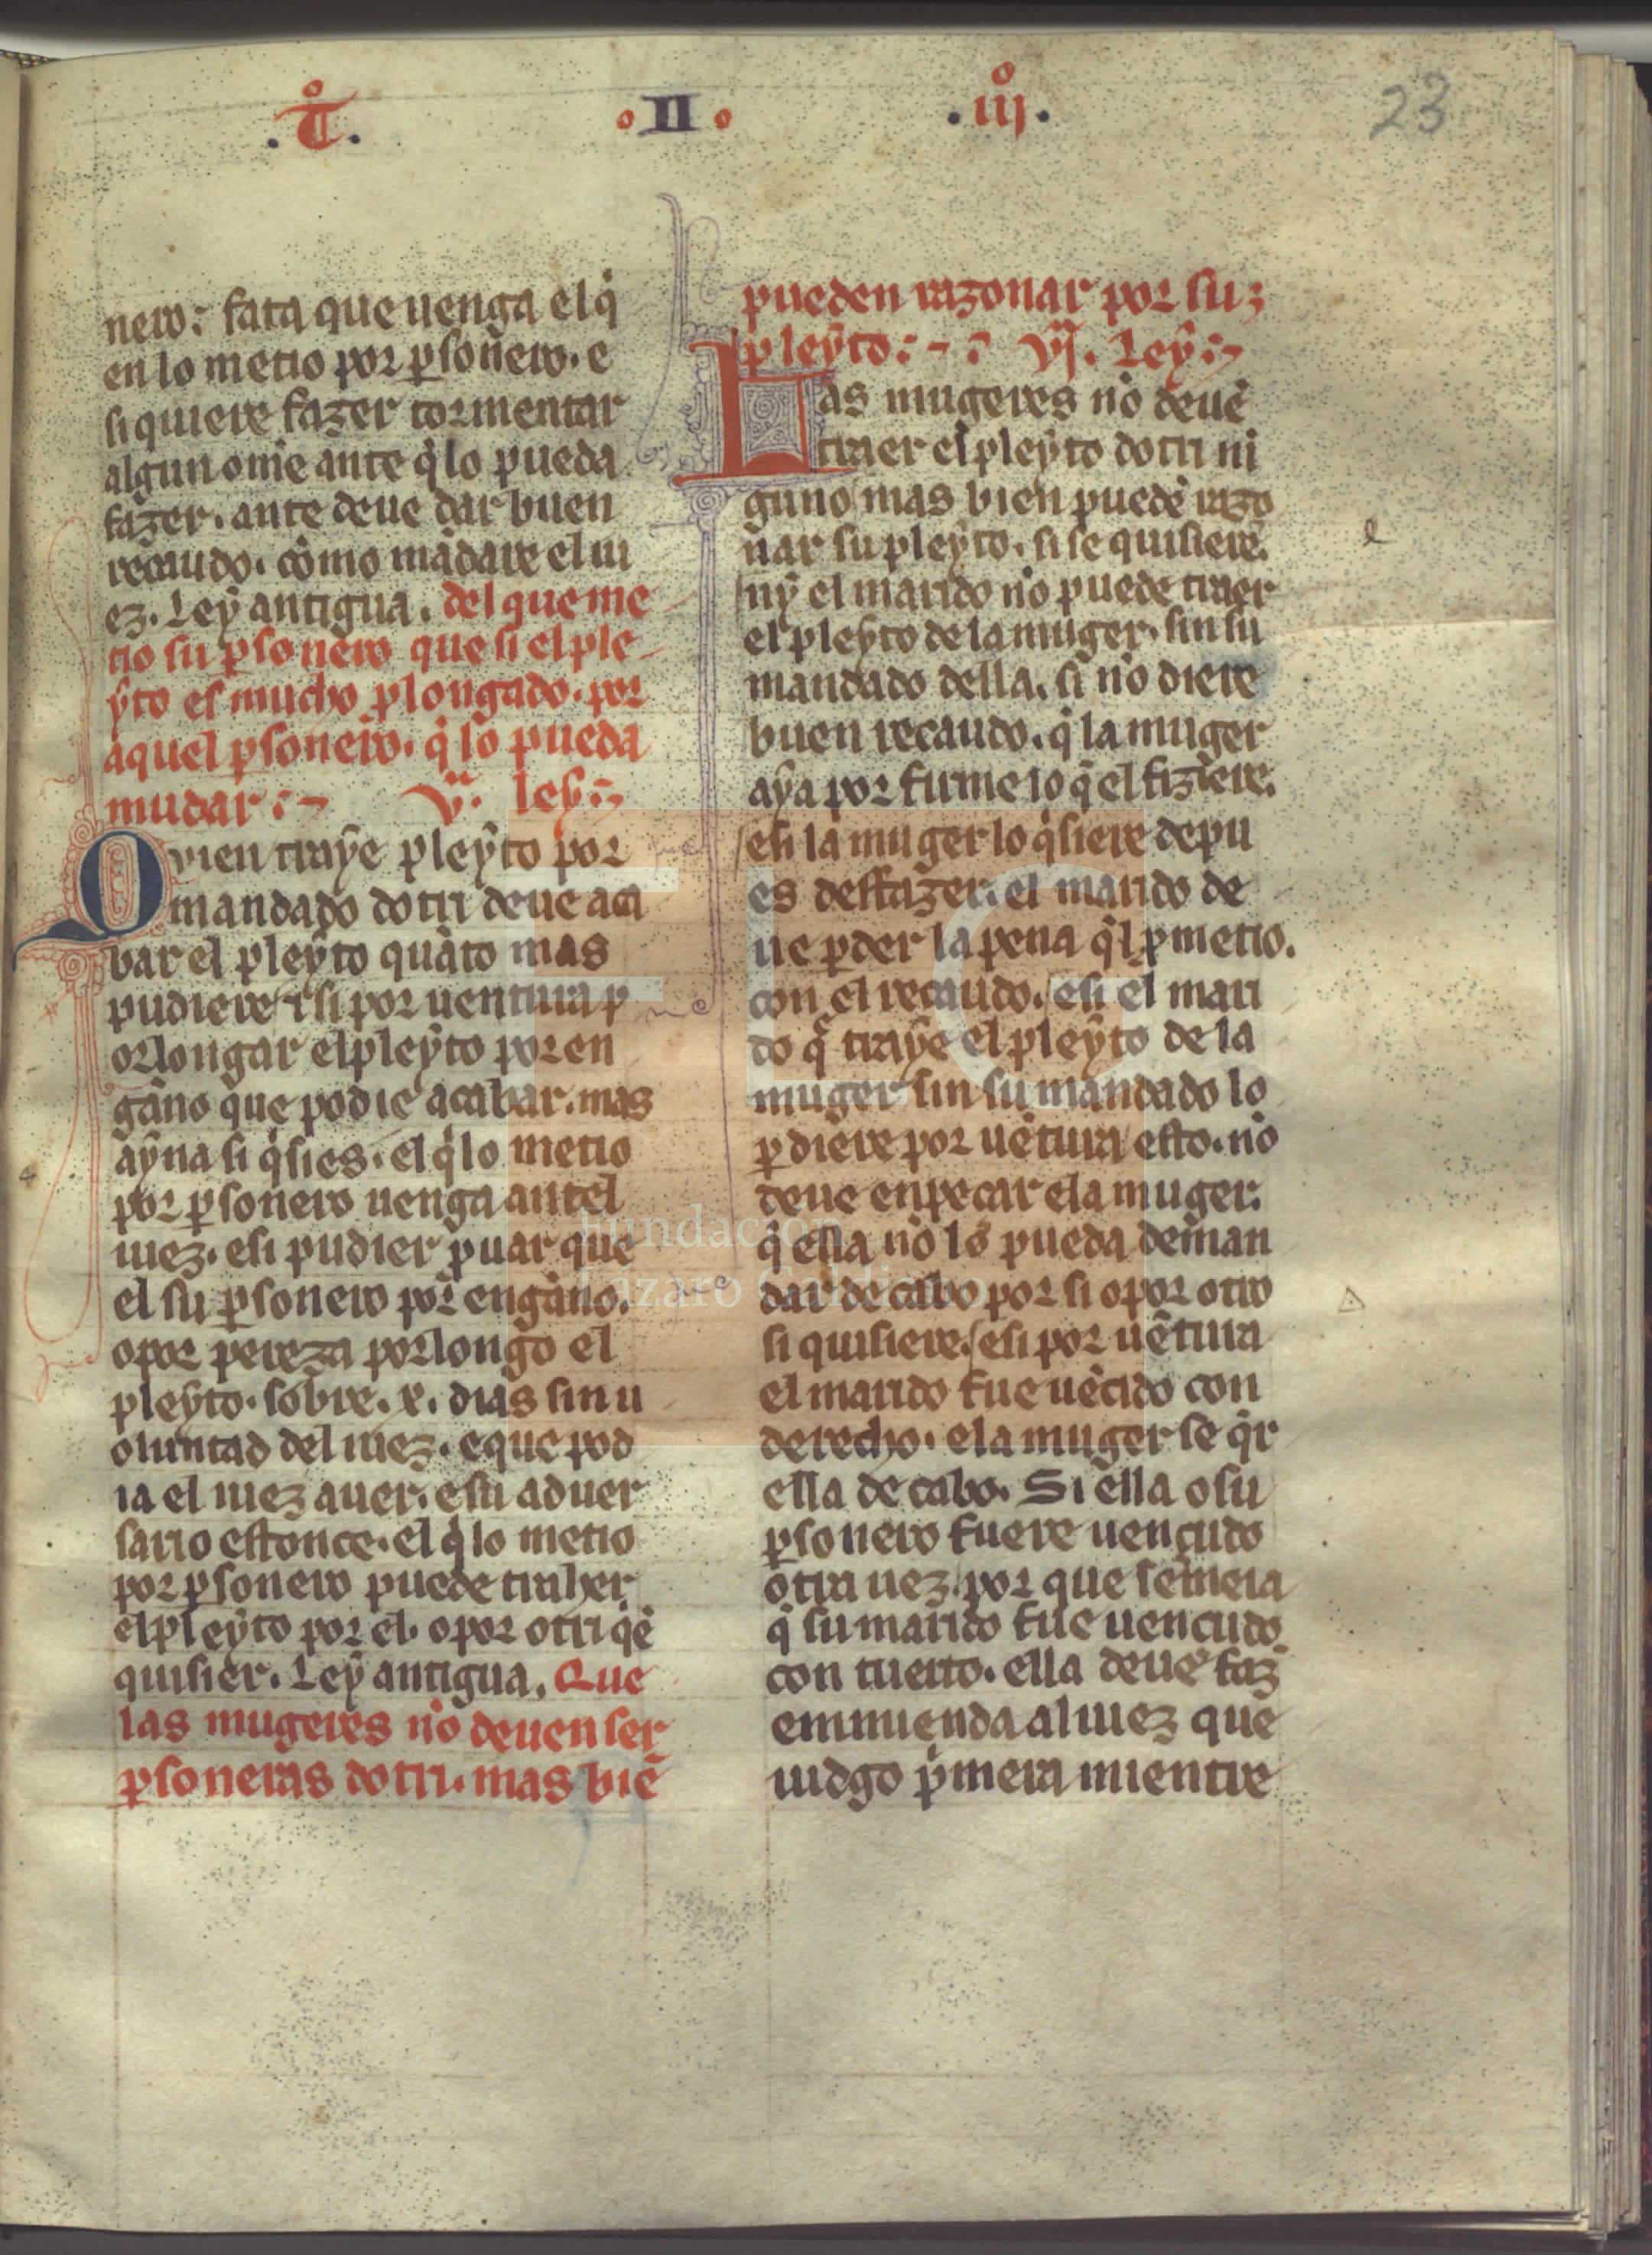 .T͞o. .II. .iijº. 23
nero: fata que uenga el q̇
en lo metio por ꝑsonero. e
si quiere fazer tormentar
algun om̄e ante q̇ lo pueda
fazer. ante deue dar buen
recaudo. como mādare el iu
ez. Ley antigua. del que me
tio su ꝑsonero que si el ple
yto es mucho ꝓlongado. por
aquel ꝑsonero. q̇ lo pueda
mudar:~ v͞. ley:~
Quien traye pleyto por
mandado dotri deue aca
bar el pleyto quāto mas
pudiere ⁊ si por uentura p
orlongar el pleyto por en
gāno que podie acabar. mas
ayna si q̇sies. el q̇ lo metio
por ꝑsonero uenga antel
iuez. e si pudier ꝓuar que
el su ꝑsonero por engāno.
o por pereza porlongo el
pleyto. sobre. x. dias sin u
oluntad del iuez. e que pod
ia el iuez auer. e su aduer
sario estonce. el q̇ lo metio
por ꝑsonero puede traher
el pleyto por el. o por otri q̇ē
quisier. Ley antigua. Que
las mugeres no deuen ser
ꝑsoneras dotri. mas biē
pueden razonar por su
pleyto:~: vj. Ley:~
Las mugeres no deuē
traer el pleyto dotri ni
guno mas bien puedē razo
nar su pleyto. si se quisierē.
ny el marido no puede traer
el pleyto de la muger. sin su
mandado della. si no diere
buen recaudo. q̇ la muger
aya por firme lo q̇ el fiziere.
e si la muger lo q̇siere depu
es desfazer. el marido de
ue ꝑder la pena q̇l ꝓmetio.
con el recaudo. e si el mari
do q̄ traye el pleyto de la
muger sin su mandado lo
ꝑdiere por uētura esto. no
deue enpecar e la muger.
q̇ ella no lo pueda deman
dar de cabo por si o por otro
si quisiere. e si por uētura
el marido fue uēcido con
derecho. e la muger se q̇r
ella de cabo. Si ella o su
ꝑsonero fuere uencudo
otra uez. por que semeia
q̇ su marido fue uencudo
con tuerto. ella deue faz̄
emmienda al iuez que
iudgo p̍mera mientre
e
Fundación
Lázaro Galdiano